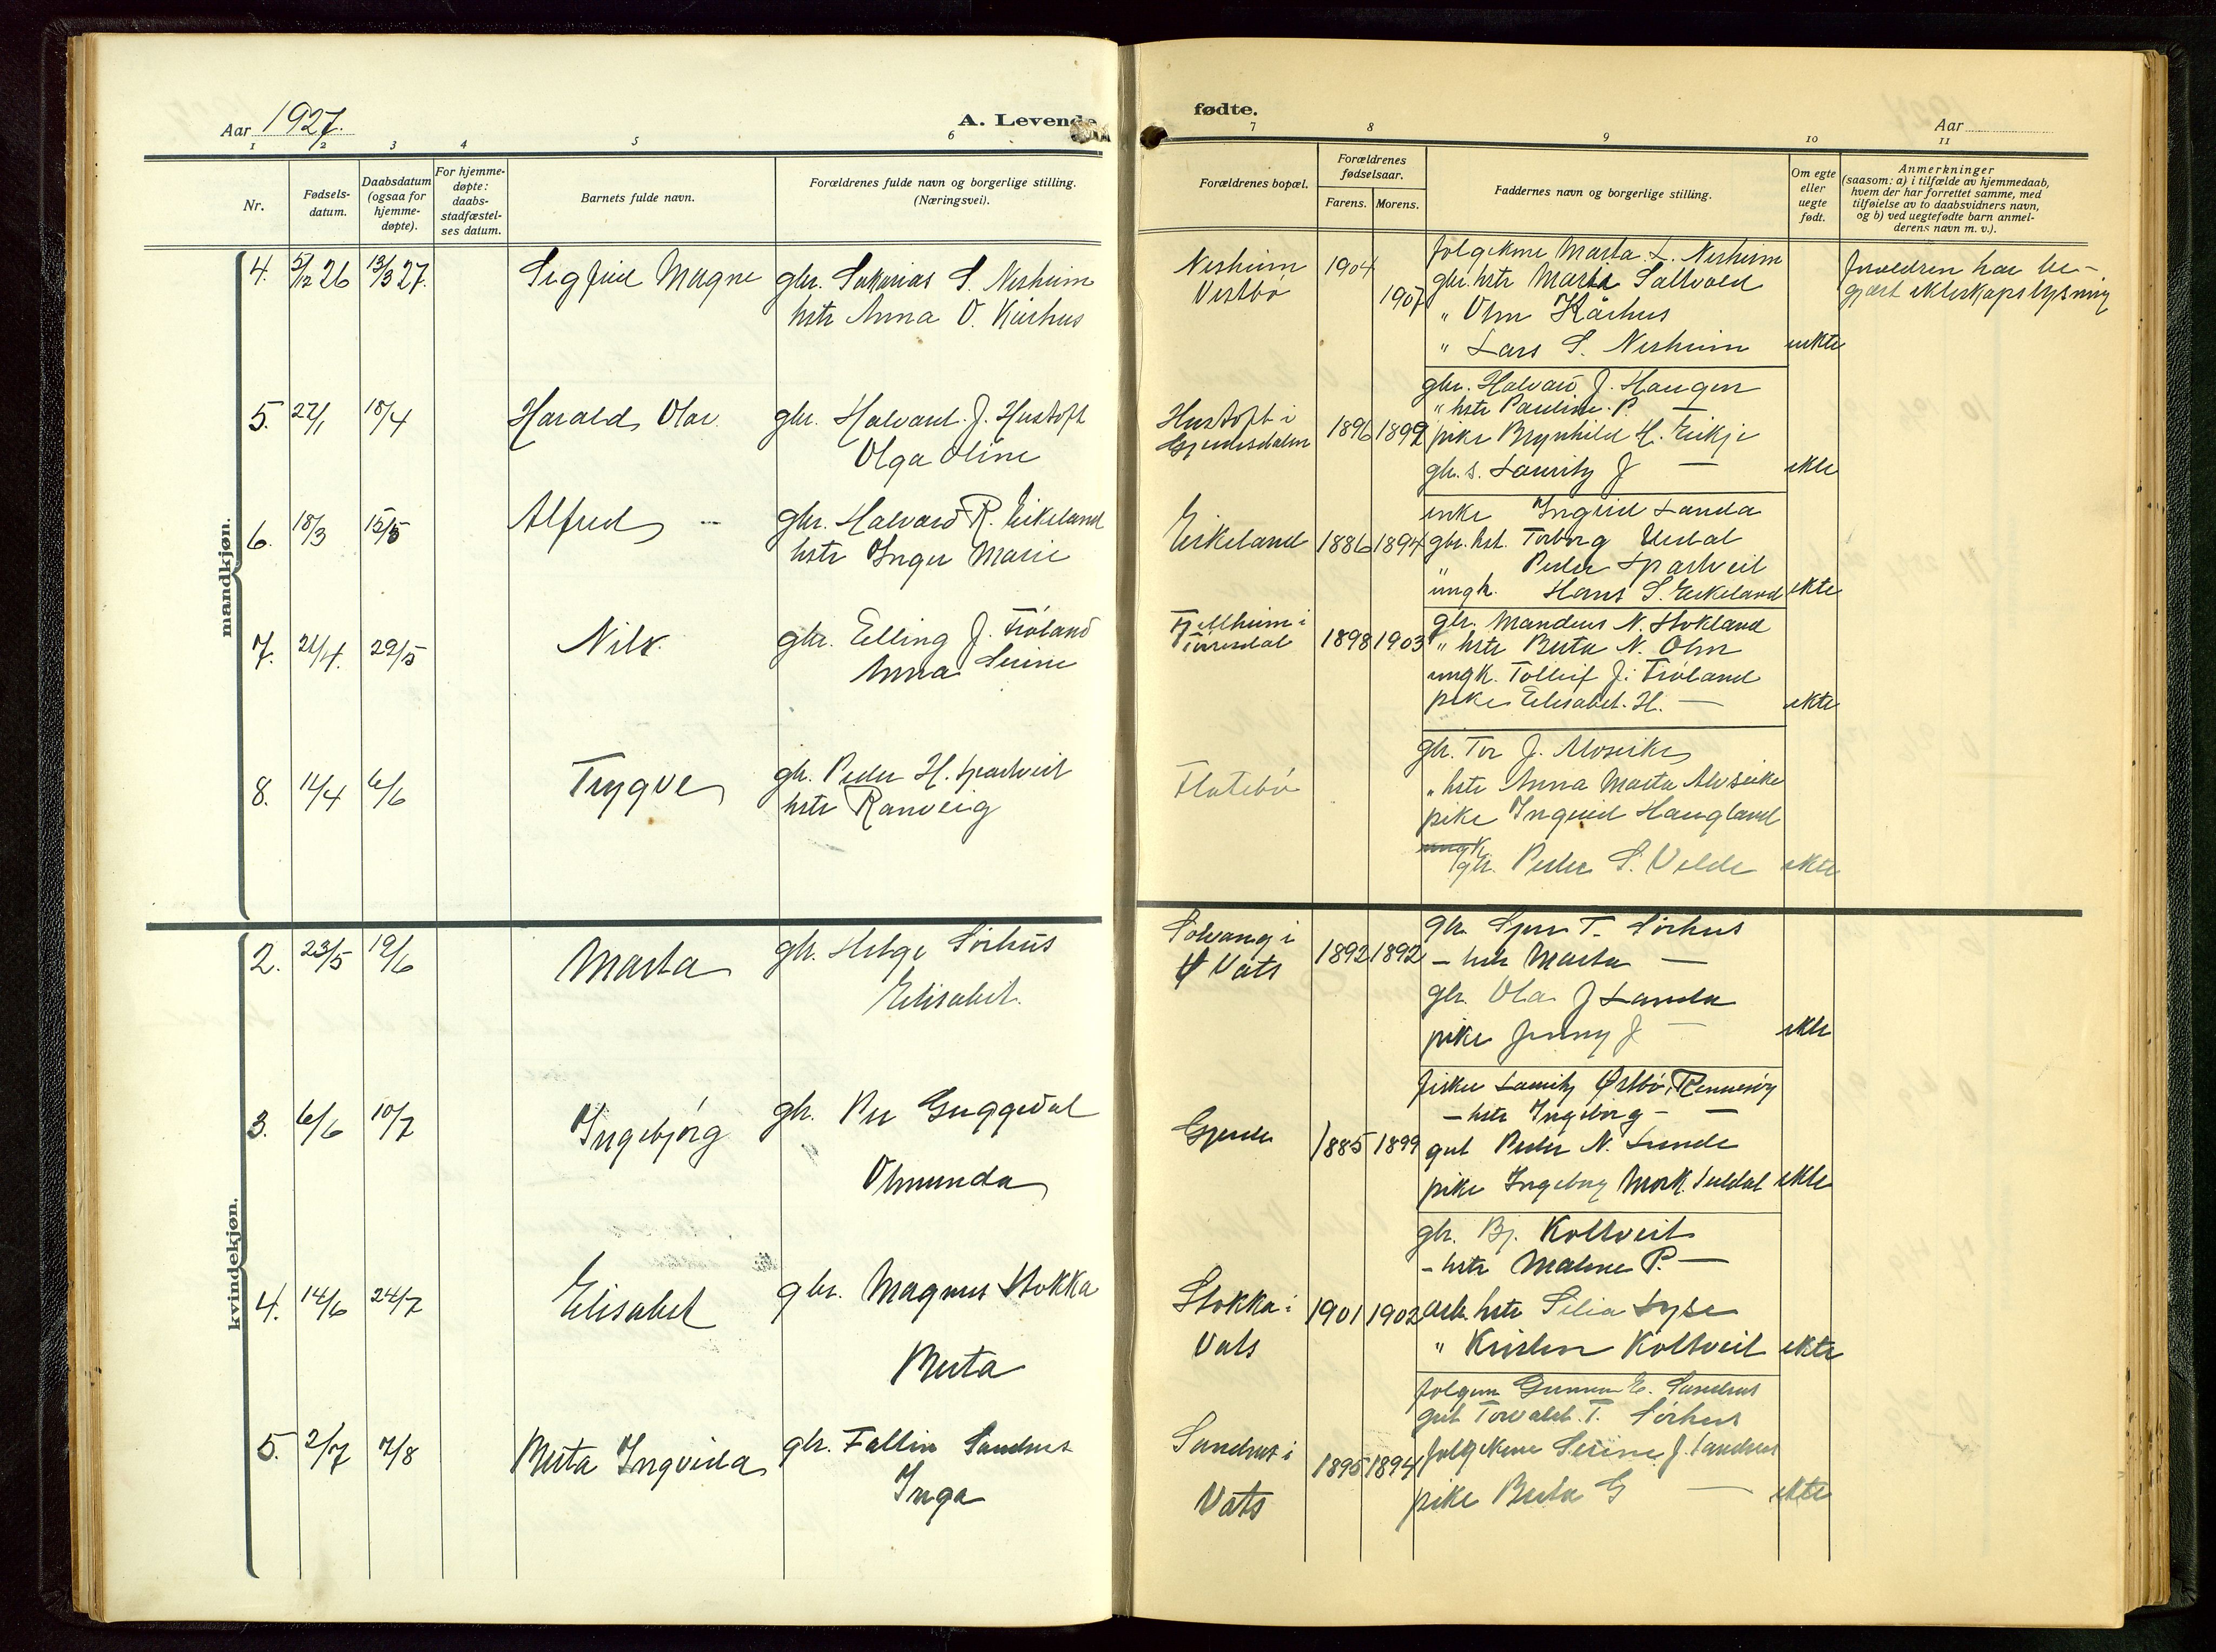 Aar 1927.
A. Levende
fødte.
Aar
1 2 3 4 5 6 7 8 9 10 11
Nr.
Fødsels-
datum.
Daabsdatum
(ogsaa for
hjemme-
døpte).
For hjemme-
døpte:
daabs-
stadfæstel-
ses datum.
Barnets fulde navn.
Forældrenes fulde navn og borgerlige stilling.
(Næringsvei).
Forældrenes bopæl.
Forældrenes
fødselsaar.
Farens. Morens.
Faddernes navn og borgerlige stilling.
Om egte
eller
uegte
født.
Anmerkninger
(saasom: a) i tilfælde av hjemmedaab,
hvem der har forrettet samme, med
tilføielse av to daabsvidners navn,
og b) ved uegtefødte barn anmel-
derens navn m. v.).
mandkjøn.
4. 5/12 26 13/3 27. Sigfred Magne gbr. Sakarias S. Nesheim
hstr Anna O. Kårhus
Nesheim 1904
Vestbø 1907
folgekone Marta L. Nesheim
gbr. hstr Marta Saltvold
" Olm Kårhus
" Lars S. Nesheim uekte
foreldren har be-
gjært ekteskapslysning
5. 27/1 18/4 Harald Olav gbr. Halvard J. Hustoft
Olga Oline
Hustoft i
1896 1899
gbr. Halvard J. Haugen
" hstr Pauline P. —
pike Brynhild H. Eikje
gbr. s. Lauritz J — ekte
6. 18/3 15/5 Alfred gbr. Halvard R. Eikeland
hstr Inger Marie
Eikeland 1886 1894
enke Ingrid Landa
gbr. hst. Torborg
" Peder Spartveit
ungk. Hans S. Eikeland ekte
7. 21/4. 29/5 Nils. gbr. Elling J. Frøland
Anna Serine
Fjellheim i
1898 1903
gbr. Mandius N. Stokland
" hstr Berta N. Olm
ungk. Tolleif J. Frøland
pike Elisabet. H. — ekte
8. 14/4 6/6 Trygve gbr. Peder H. Spartveit
hstr Ranveig
Flatebø
gbr. Tor J. Alvseike
" hstr Anna Marta Alvseike
pike Ingrid Haugland
ungk
gbr. Peder S. Velde ekte
kvindekjøn.
2. 23/5 19/6 Marta gbr. Helge Sørhus
Elisabet.
Solvang i
Ø Vats
1892 1892
gbr. T. Sørhus
— hstr Marta —
gbr. Ola J Landa
pike Jenny J — ekte
3. 6/6 10/7 Ingebjørg gbr. Per Guggedal
Olmunda
Gjerde 1885 1899
fisker Lauritz Østbø, Rennesøy
— hstr Ingeborg — —
gut Peder N. Lunde
pike Ingeborg Mork. Suldal ekte
4. 14/6 24/7 Elisabet gbr. Magnus Stokka
Berta
Stokka i
Vats
1901 1902
gbr. Bj. Koltveit
— hstr Malene P. —
arb. hstr Silia Lyse
" Kristen Koltveit ekte
5. 2/7 7/8 Berta Ingvida gbr. Fallin Sandhus
Inga
Sandhus i
Vats
1895 1894
folgem. Gunnar E. Sandhus
gut Torvald. T. Sørhus
folgekone Serine J. Sandhus
pike Berta G — ekte